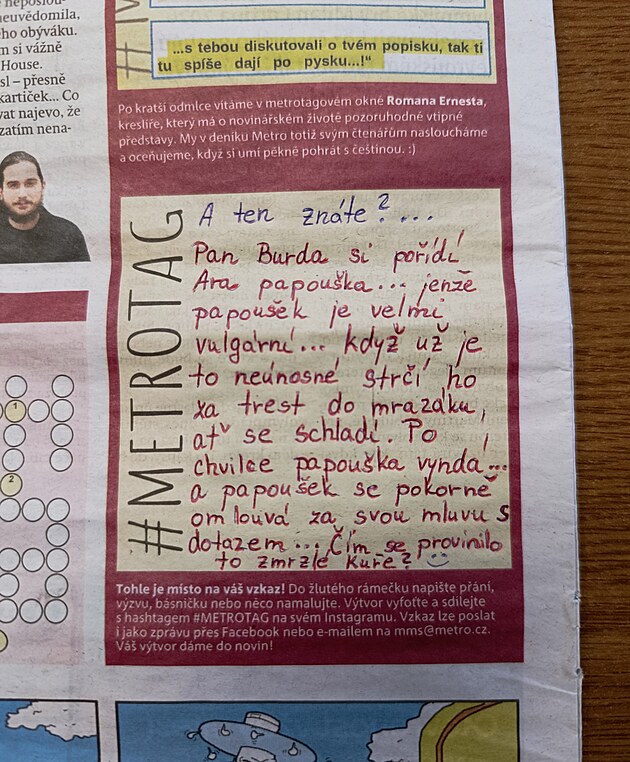 neuvědomila,
ho obýváku.
m si vážně
House.
sl – přesně
kartiček... Co
vat najevo, že
zatím nena-
...s tebou diskutovali o tvém popisku, tak ti
tu spíše dají po pysku...!“
Po kratší odmlce vítáme v metrotagovém okně Romana Ernesta,
kreslíře, který má o novinářském životě pozoruhodné vtipné
představy. My v deníku Metro totiž svým čtenářům nasloucháme
a oceňujeme, když si umí pěkně pohrát s češtinou. :)
#METROTAG
A ten znáte?...
Pan Burda si pořídí
Ara papouška... jenže
papoušek je velmi
vulgární... když už je
to neúnosné strčí ho
za trest do mrazáku,
ať se schladí. Po
chvilce papouška vyndá...
a papoušek se pokorně
omlouvá za svou mluvu s
dotazem... Čím se provinilo
to zmrzlé kuře?
Tohle je místo na váš vzkaz! Do žlutého rámečku napište přání,
výzvu, básničku nebo něco namalujte. Výtvor vyfoťte a sdílejte
s hashtagem #METROTAG na svém Instagramu. Vzkaz lze poslat
i jako zprávu přes Facebook nebo e-mailem na mms@metro.cz.
Váš výtvor dáme do novin!
1
2